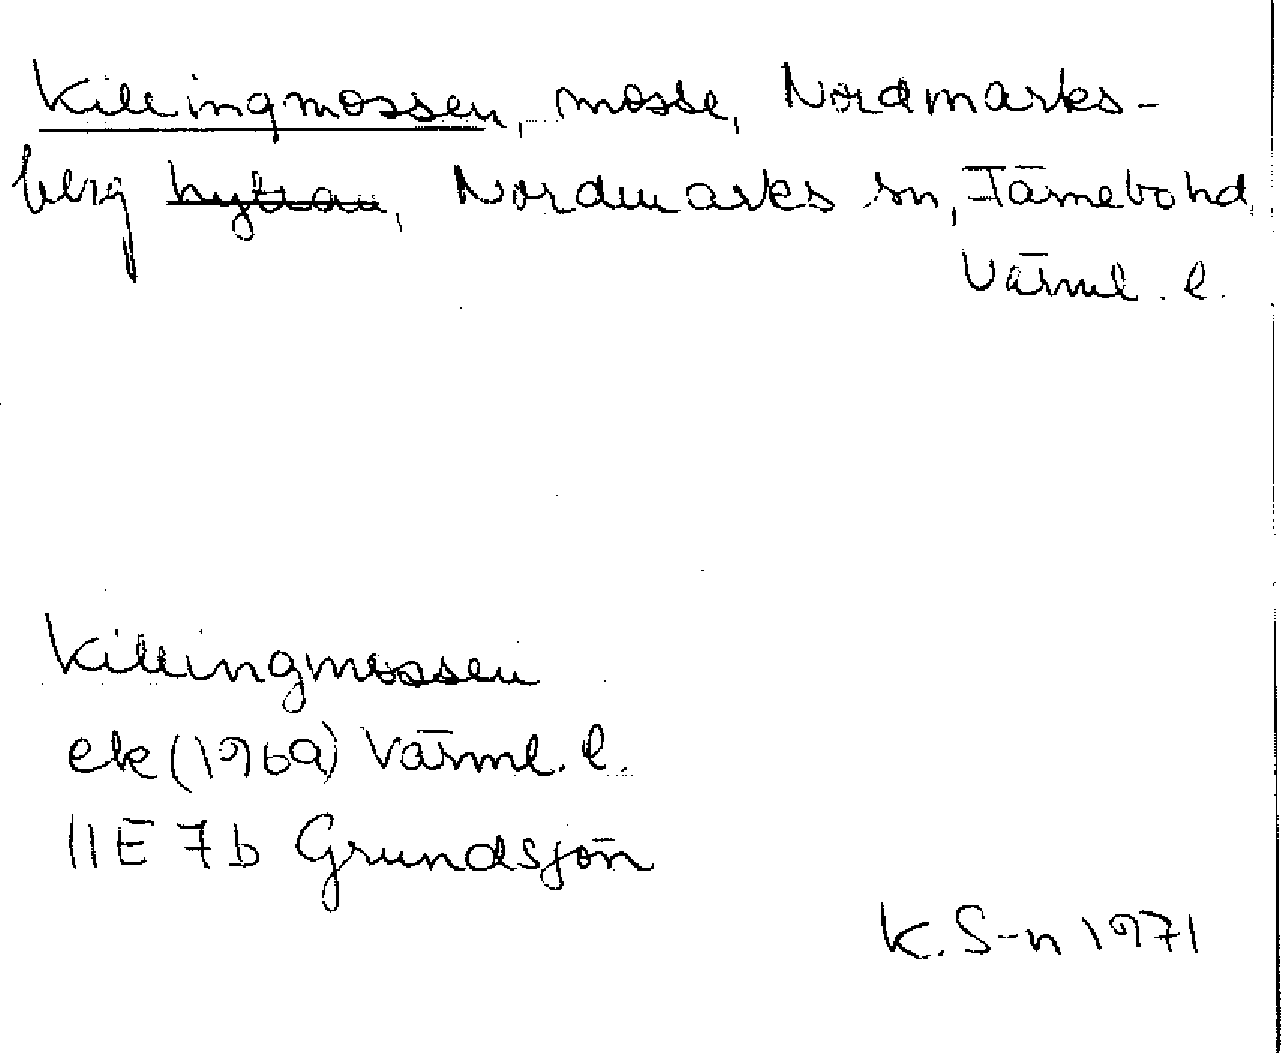 Killingmossen, mosse, Nordmarks-
berg hyttan, Nordmarks sn, Färnebo hd,
Värml. l.
Killingmossen
ek (1969) Värml. l.
11E 7b Grundsjön
K. S-n 1971